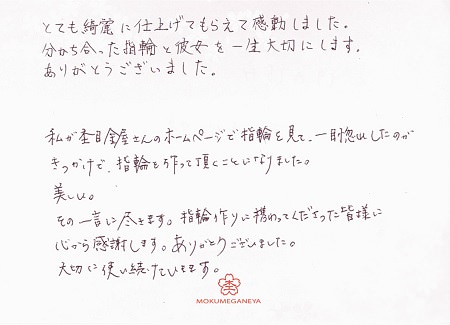 とても綺麗に仕上げてもらえて感動しました。
分かち合った指輪と彼女を一生大切にします。
ありがとうございました。
私が杢目金屋さんのホームページで指輪を見て、一目惚れしたのが
きっかけで、指輪を作って頂くことになりました。
美しい。
その一言に尽きます。指輪作りに携わってくださった皆様に
心から感謝します。ありがとうございました。
大切に使い続けていきます。
MOKUMEGANEYA